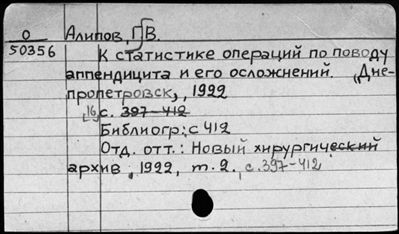 О Алипов, Г. В.
50356 К статистике операций по поводу
аппендицита и его осложнений. "Дне-
пропетровск", 1922
16 с. 397-412
Библиогр: с 412
Отд. отт.: Новый хирургический
архив, 1922, т. 2. с. 397-412